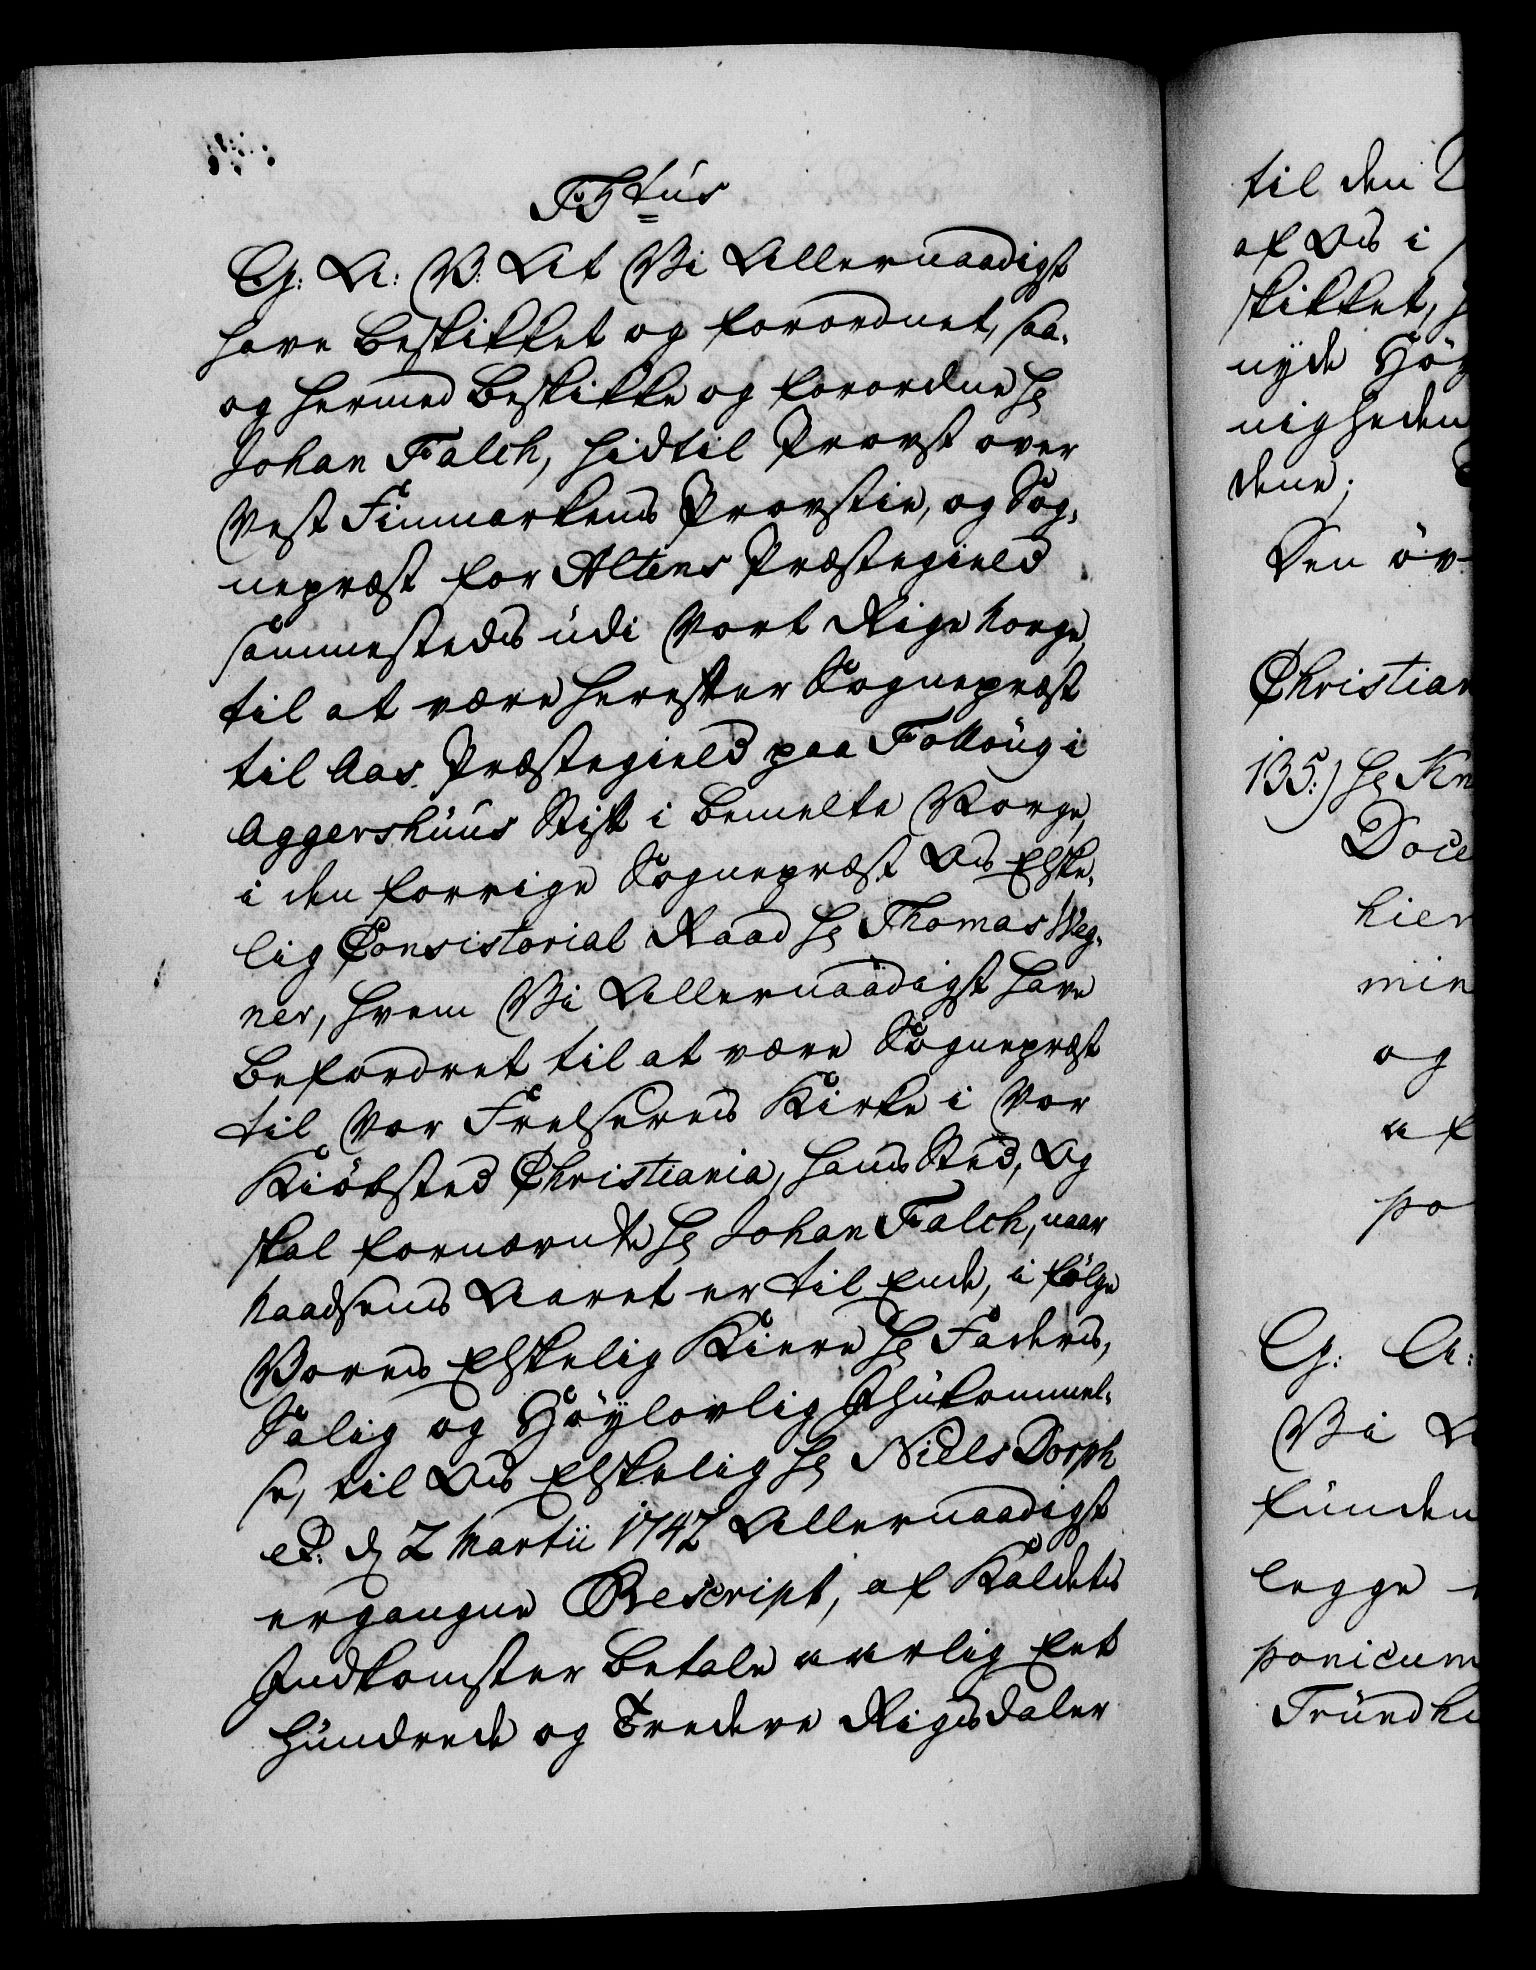 F5tus
G: A: V: At Vi Allernaadigst
have beskikket og forordnet, saa-
og hermed beskikke og forordne Hr
Johan Falch, hidtil Provst over
Vest Finmarkens Provstie, og Sog-
nepræst for Altens Præstegield
sammesteds udi Vort Rige Norge,
til at være herefter Sognepræst
til Aas Præstegield paa Folloug i
Aggershuus Stift i bemelte Norge,
i den forrige Sognepræst Os Elske-
lig Consistorial Raad Hr Thomas Weg-
ner, hvem Vi Allernaadigst have
befordret til at være Sognepræst
til Vor Frelseres Kirke i Vor
Kiöbsted Christiania, hans Sted, Og
skal fornævnte Hr Johan Falch, naar
Naadsens Aaret er til Ende, i fölge
Vores Elskelig Kiere Hr Faders,
Salig og Höylovlig Ihukommel-
se, til Os Elskelig Hr Niels Dorph
d: 2 Martii 1742 Allernaadigst
ergangne Rescript, af Kaldets
Indkomster betale aarlig Eet
Hundrede og Tredeve Rigsdaler
til den
af Os i
skikket,
nyde Höy
nigheden
dene;
Den öv
Christian
135:) Hr Kn
Doce
hier
min
og
af
po
G: A:
Vi
funden
legge
ponicum
Trundh